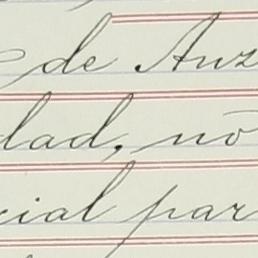 de Anz
dad, no
cial par